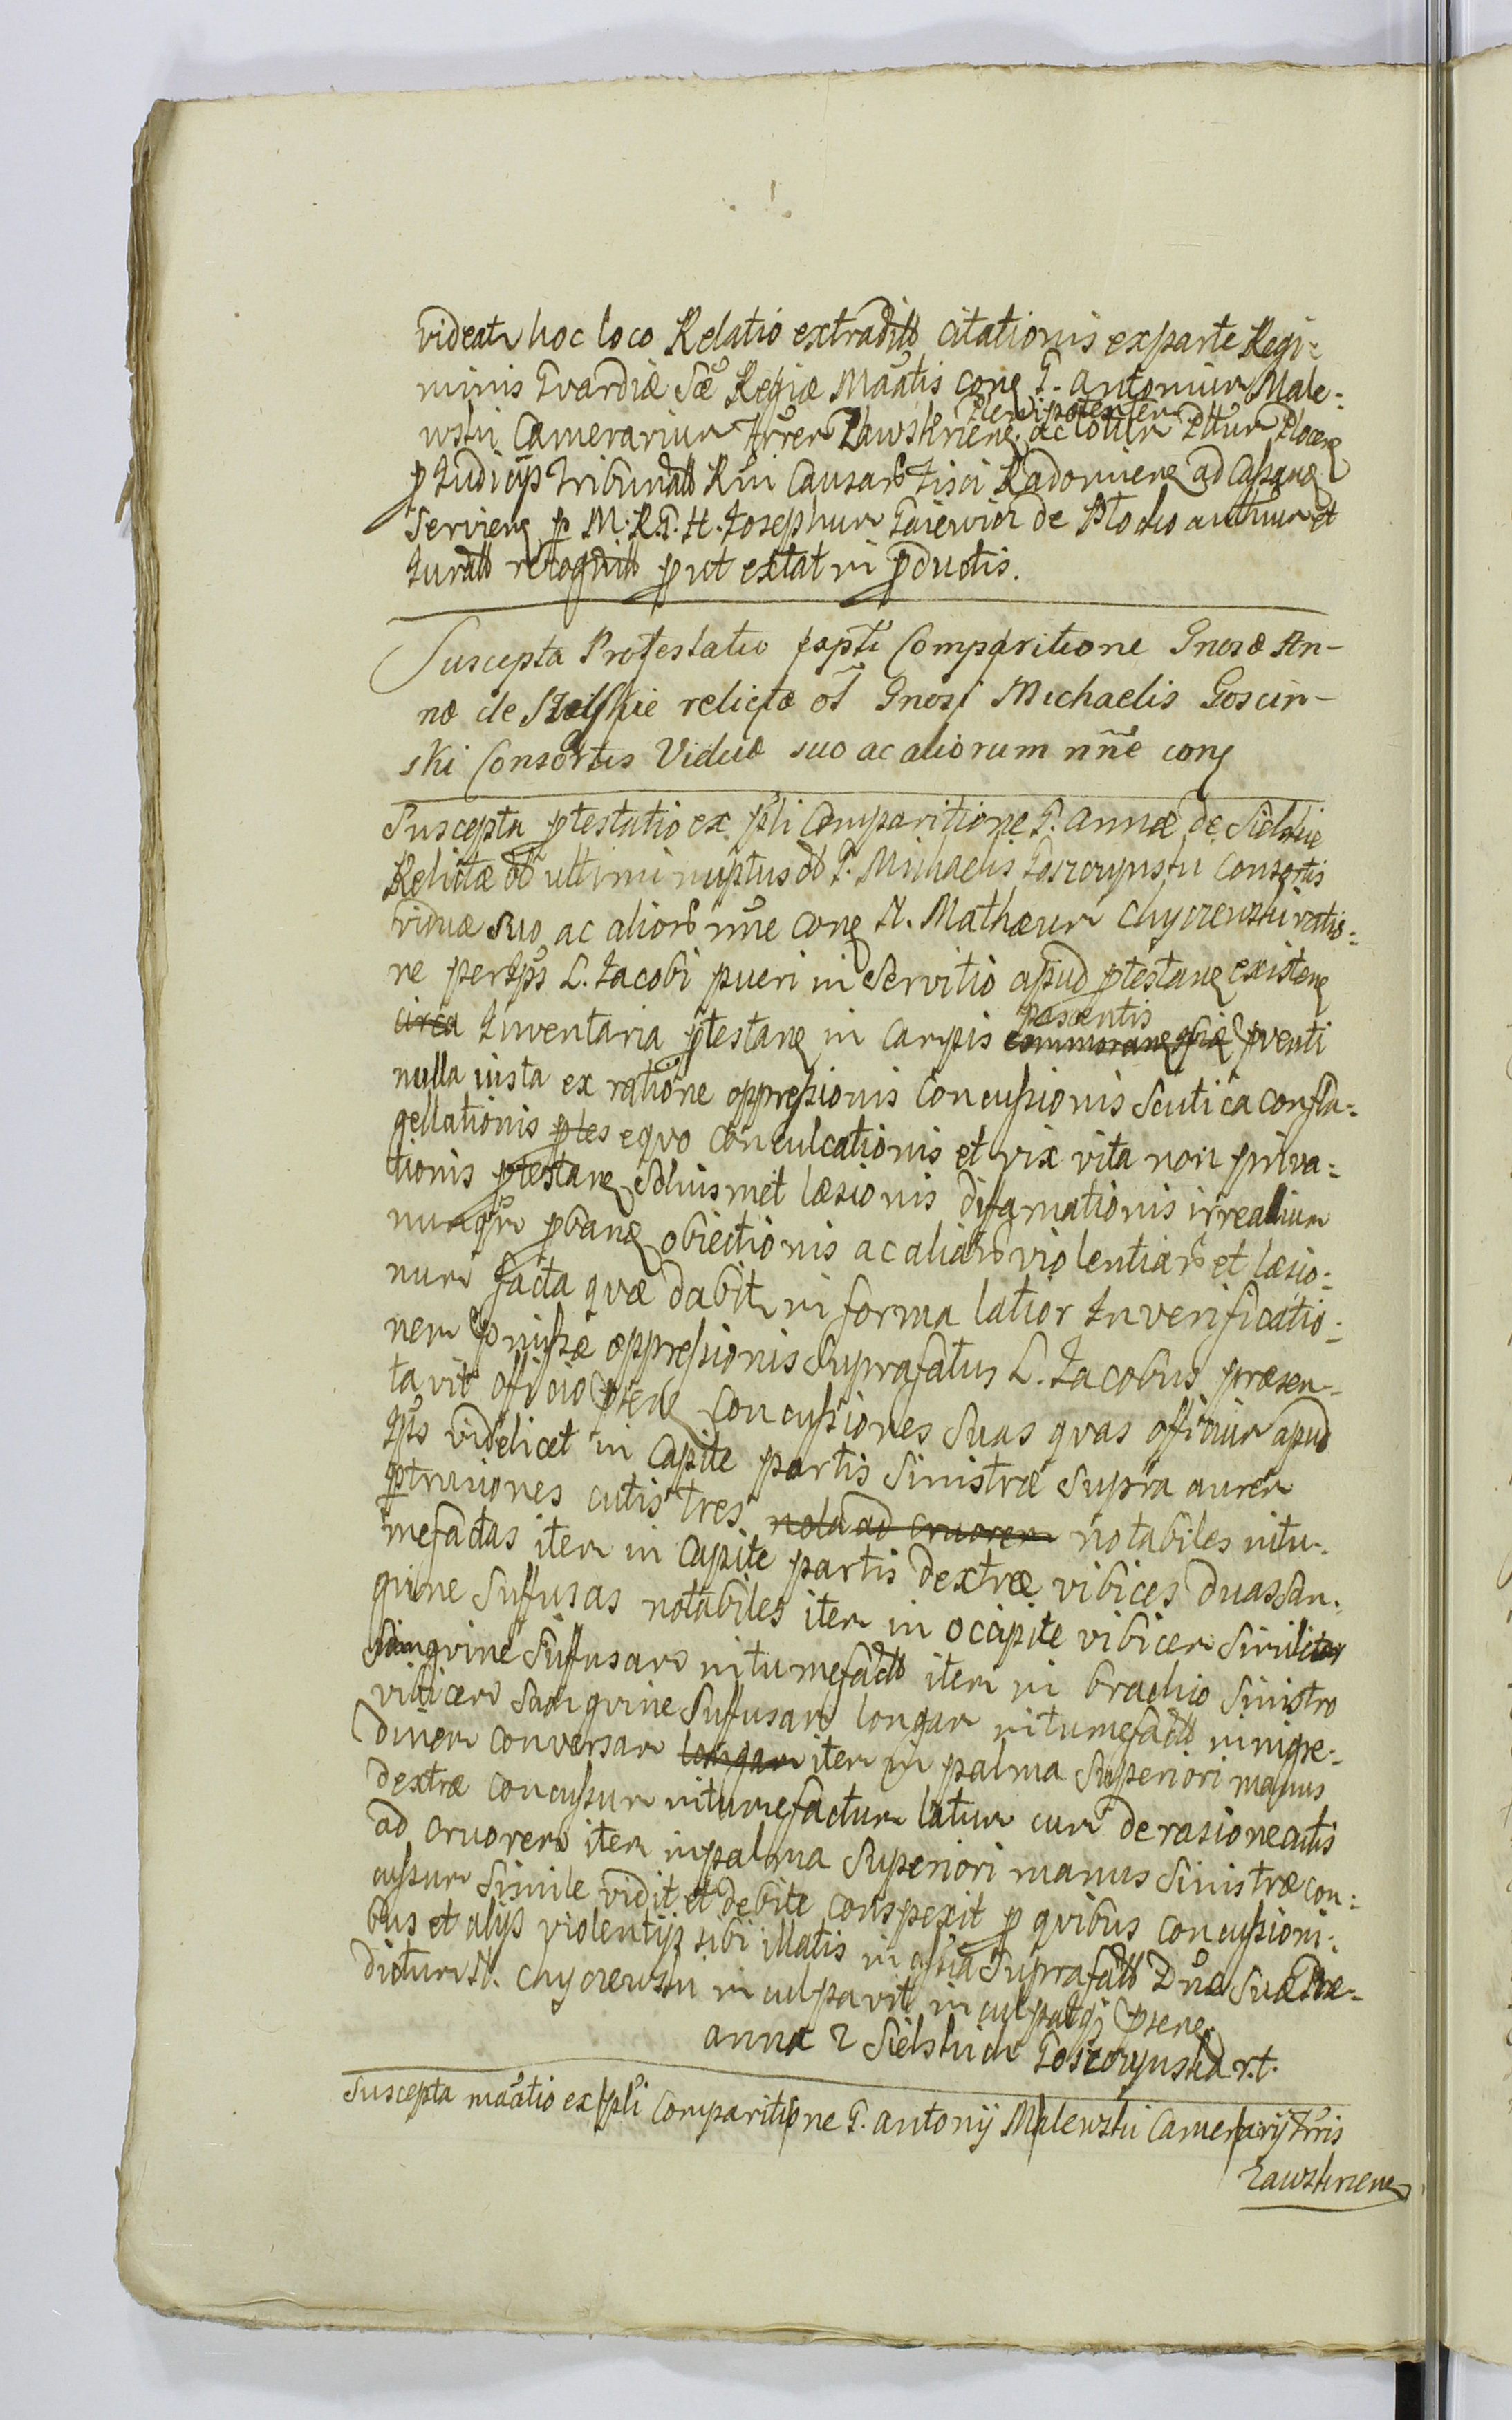 videatr hoc loco Relatio extradit citationis ex parte Regi-
minis Gvardiæ Sæ Regiæ Mãttis con G. Antonium Male-
wski Camerarium Trrer Zawskrien. Plenipotentem ac totum Pttum Plocen
p Iudicijs Tribunal Rni Causar Fisci Radomien ad Cassan
Servien p M. R. G. H. Josephum de Plocko authum et
Iurat recognit prout extat in productis.
Suscepta Protestatio psonli Comparitione Gnosæ An-
næ de Sielskie relictæ ol Gnosi Michaelis Goscin-
ski Consortis Viduæ suo ac aliorum nñe con
Suscepta ptestatio ex psli Comparitione G. Annæ de Sielskie
Relictæ ol ultimi nuptus ol G. Michaelis Goszczynski Consortis
viduæ suo ac alior nñe con N. Mathæum Chyczewski ratio-
ne per Ips L. Jacobi pueri in Servitio apud ptestan existen
circa Inventaria ptestan in Campis pascentis commoran pventi
nulla iusta ex ratione oppressionis Concussionis Scutica confla-
gellationis ptes equo conculcationis et vix vita non priva-
tionis ptestan Soliusmet læsionis difamationis irrealium
nunqm pban obiectionis ac aliar violentiar et læsio-
num facta quæ dabitr in forma latior In verificatio-
nem pmissæ oppressionis Suprafatus L. Jacobus præsen-
tavit officio psen Concussiones Suas quas officium apud
Ips videlicet in Capite partis Sinistræ Supra aurem
ptrusiones cutis tres nota ad cruorem notabiles intu-
mefactas item in Capite partis dextræ vibices duas San-
gvine Suffusas notabiles item in ocipite vibicem Similiter
Sangvine Suffusam intumefact item in brachio Sinistro
vibicem Sangvine Suffusam longam intumefact in nigre-
dinem conversam longam item in palma Superiori manus
dextræ concussum intumefactum latum cum derasione cutis
ad cruorem item in palma Superiori manus Sinistræ con-
cussum Simile vidit et debite conspexit p quibus concussioni-
bus et alijs violentijs sibi illatis in assia Suprafat Dnæ Suæ Præ-
dictum N. Chyczewski inculpavit inculpatq psen.
Anna z Sielskich Goszczynska r.t.
Suscepta mãatio ex psli Comparitione G. Antonij Malewski Camerarij Trris
Zawskrnen